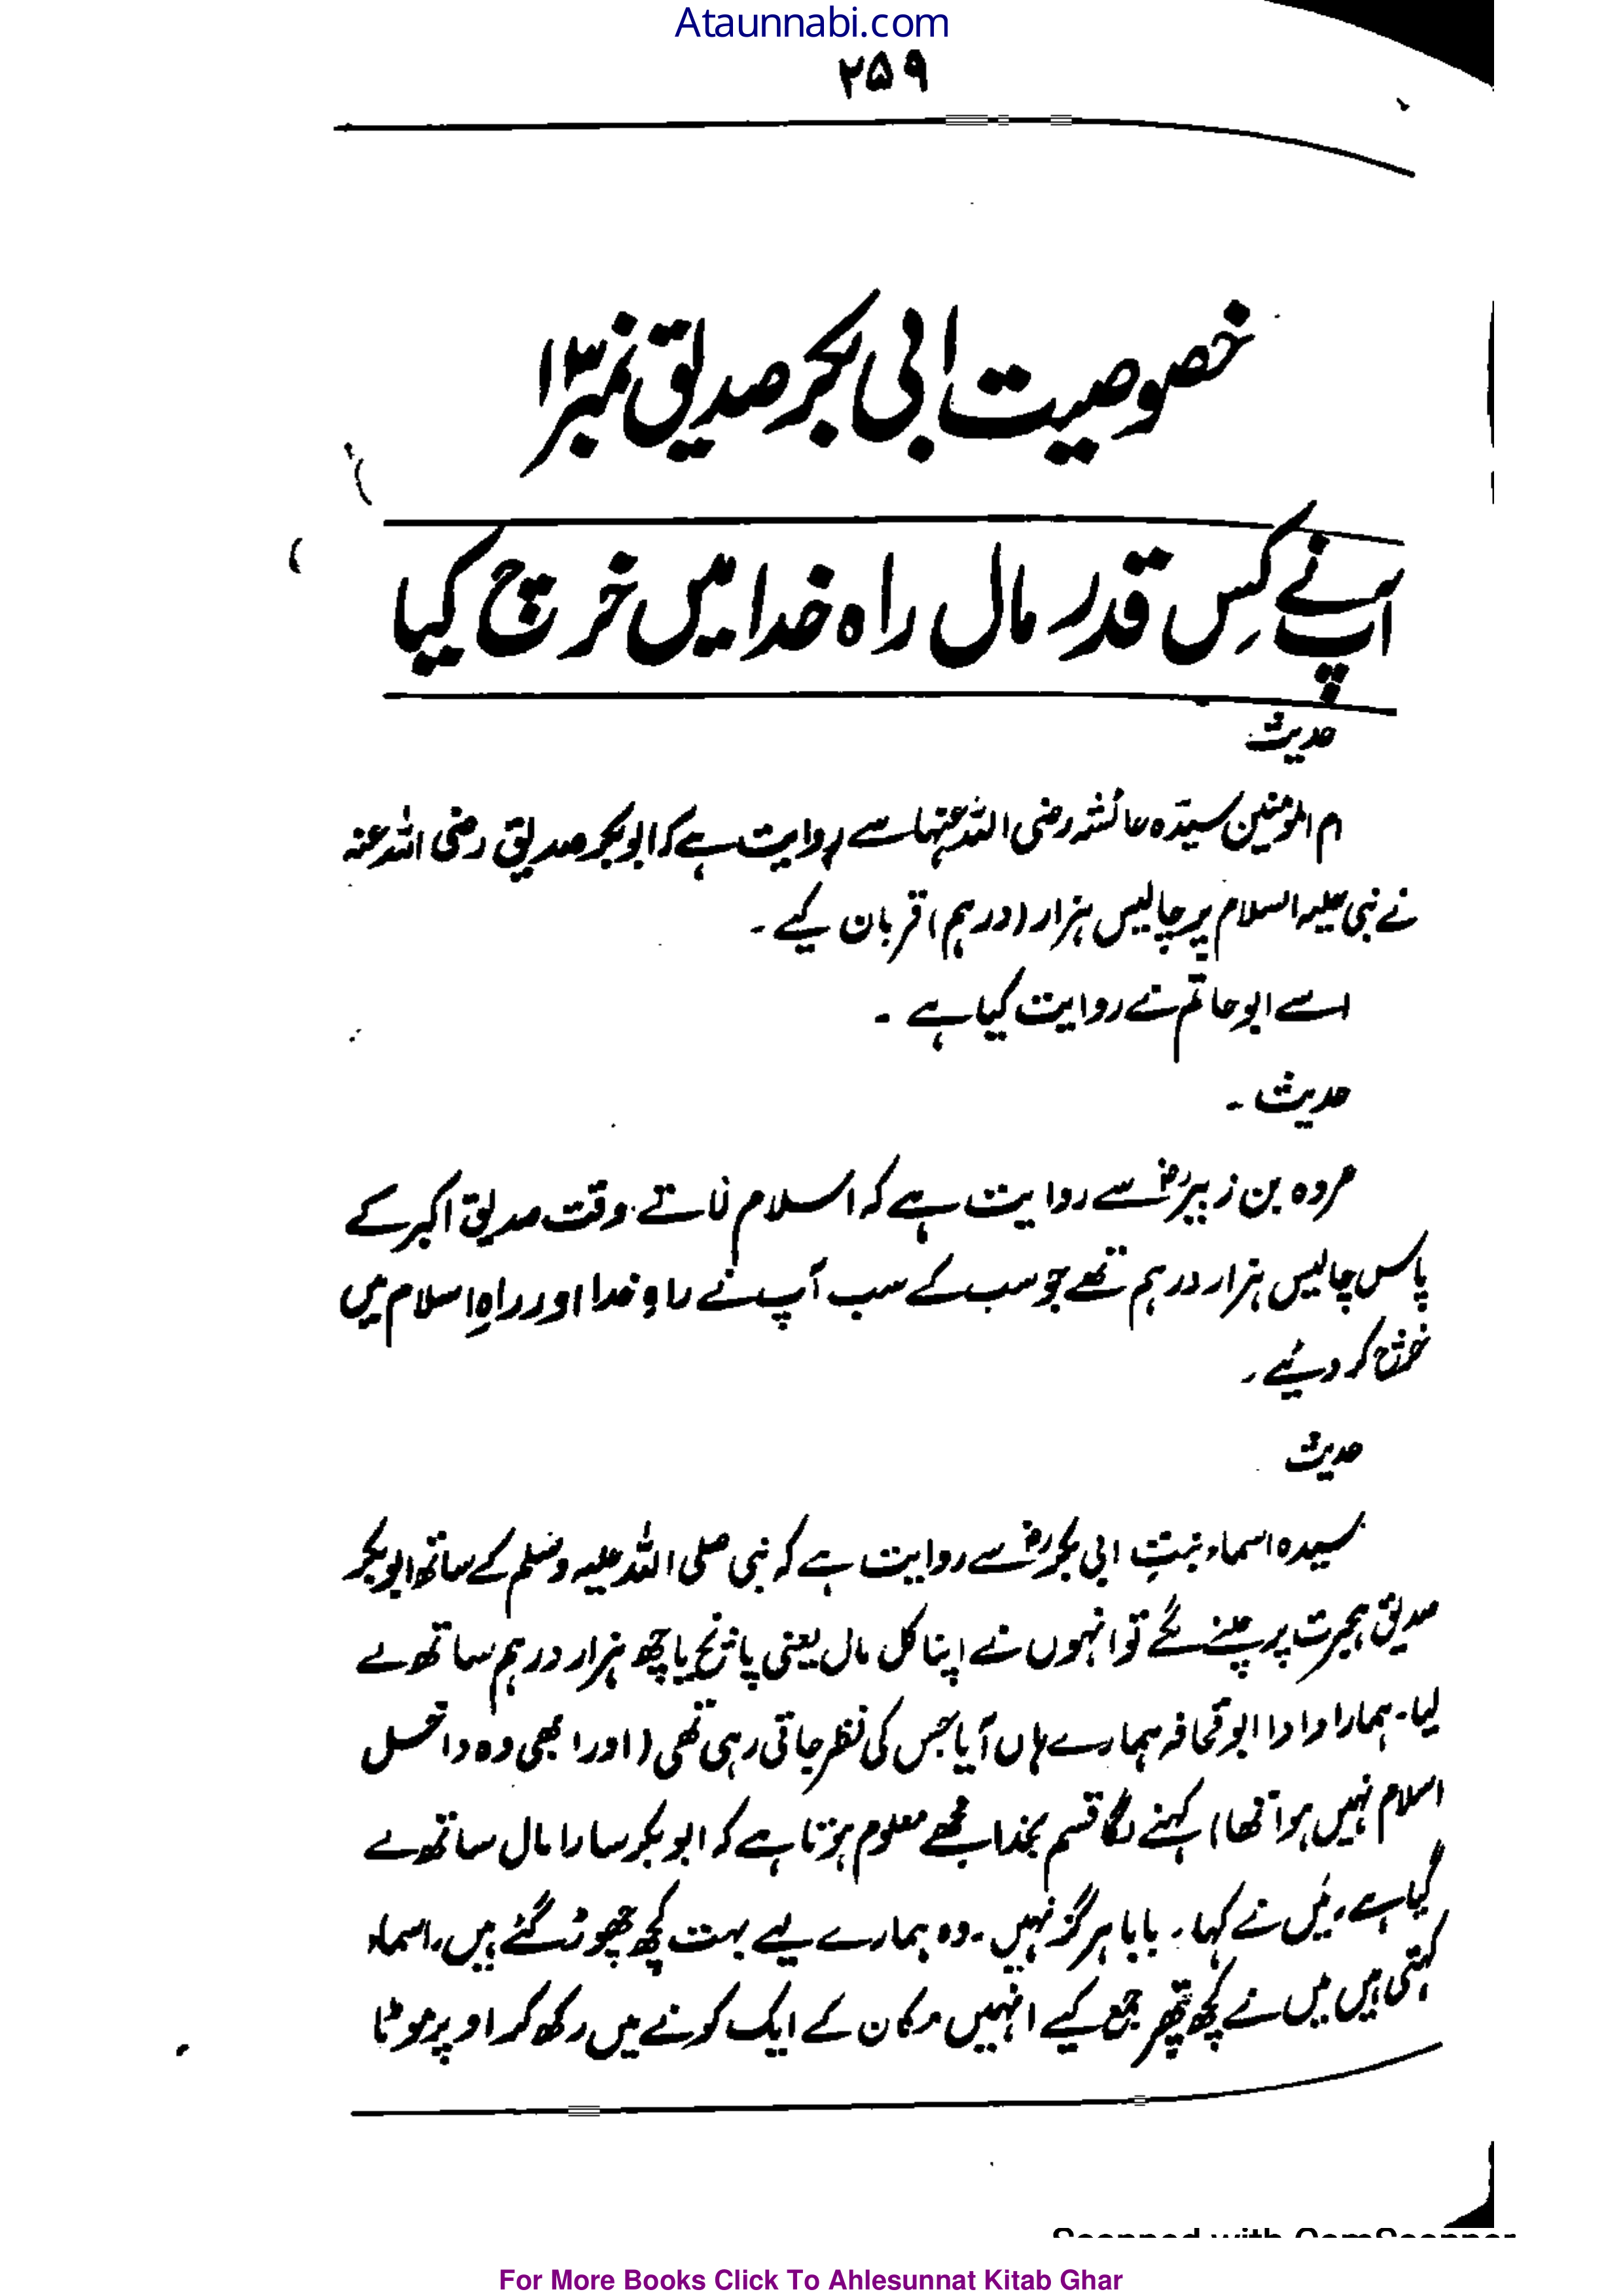 Ataunnabi.com
۲۵۹
خصوصیت ابی بکر صدیق نمبر ۱۳
آپ نے کِس قدر مال راہ خدا میں خرچ کیا
حدیث
ام المؤمنین سیدہ عائشہ رضی اللہ عنہا سے روایت ہے کہ ابوبکر صدیق رضی اللہ عنہ
نے نبی علیہ السلام پر چالیس ہزار (درہم) قربان کیے ۔
اسے ابو حاتم نے روایت کیا ہے ۔
حدیث ۔
عروہ بن زبیرؓ سے روایت ہے کہ اسلام لاتے وقت صدیق اکبر کے
پاس چالیس ہزار درہم تھے جو سب کے سب آپ نے راہِ خدا اور راہِ اسلام میں
خرچ کر دیئے ۔
حدیث
سیدہ اسماء بنتِ ابی بکرؓ سے روایت ہے کہ نبی صلی اللہ علیہ وسلم کے ساتھ ابوبکر
صدیق ہجرت پر چلنے لگے تو انہوں نے اپنا کل مال یعنی پانچ یا چھ ہزار درہم ساتھ لے
لیا۔ ہمارا دادا ابو قحافہ ہمارے ہاں آیا جس کی نظر جاتی رہی تھی (اور ابھی وہ داخل
اسلام نہیں ہوا تھا) کہنے لگا قسم بخدا مجھے معلوم ہوتا ہے کہ ابوبکر سارا مال ساتھ لے
گیا ہے، میں نے کہا۔ بابا ہرگز نہیں۔ وہ ہمارے لیے بہت کچھ چھوڑ گئے ہیں۔ اسماء
کہتی ہیں میں نے کچھ پتھر جمع کیے انہیں مکان کے ایک کونے میں رکھ کر اوپر موٹا
Scanned with CamScanner
For More Books Click To Ahlesunnat Kitab Ghar